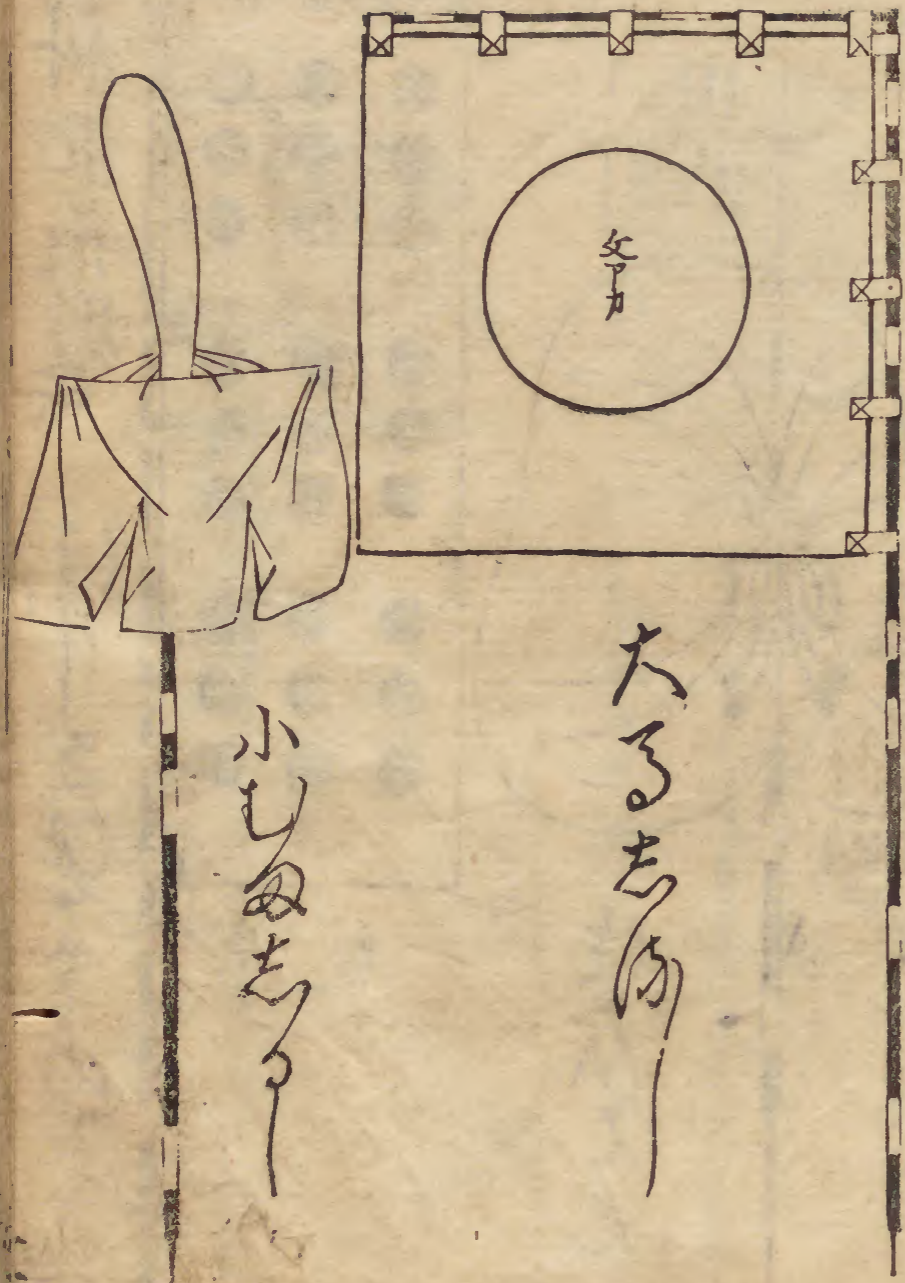 文アカ
大馬志るし
小むま志るし